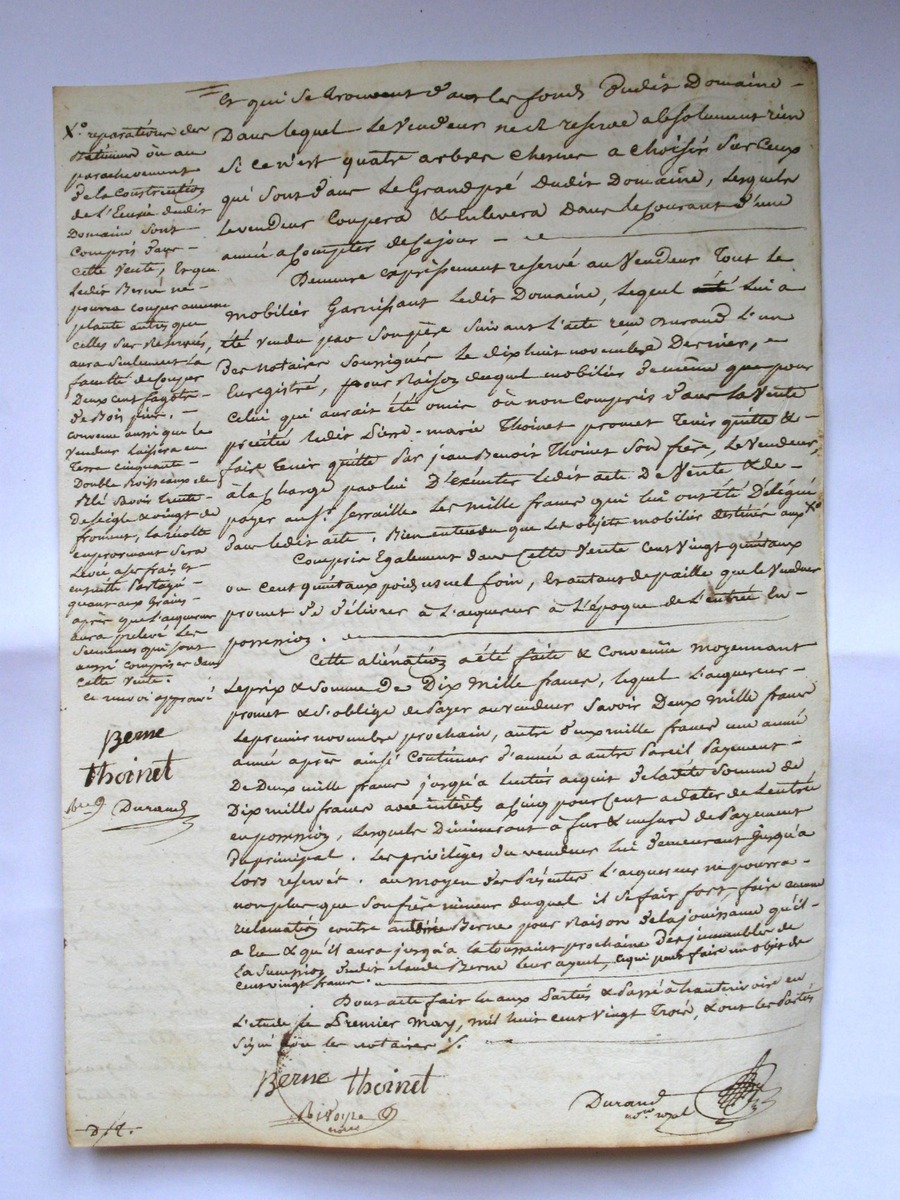 Et qui se trouvent dans les fonds dudit Domaine
Dans lequel Le Vendeur ne se reserve absolument rien
Si ce n'est quatre arbres chesnes a choisir Sur Ceux
qui Sont dans Le Grand pré Dudit Domaine, Lesquels
Le vendeur Coupera & Enlevera Dans le Courant d'une
année a Compter de Ce jour
Demeure expressement reservé au Vendeur Tout Le
mobilier Garnissant Ledit Domaine, Lequel Lui a
été vendu par Son père Suivant L'acte reçu Durand L'un
des notaires Soussignés Le dix huit novembre Dernier,
Enregistré, pour Raison duquel mobilier de même que pour
Celui qui aurait été omis ou non Compris dans La Vente
précitée Ledit Pierre-marie Thoinet promet tenir quitte &
faire tenir quitte Par jean Benoit Thoinet Son frère, Le Vendeur,
à la Charge par lui D'éxecuter Ledit acte De Vente & de
payer au Sr. Les mille francs qui Lui ont été Délégués
Dans Ledit acte. Bien entendu que Les objets mobiliers destinés aux Xº
Compris Egalement dans Cette Vente Cent Vingt quintaux
ou Cent quintaux poids usuel foin, & autant de paille que Le Vendeur
promet de délivrer à L'acquereur à L'époque de L'entrée En
possession.
Cette aliénation a été faite & Convenüe moyennant
Le prix & Somme De Dix Mille francs, Lequel L'acquereur
promet & S'oblige de Payer au vendeur Savoir Deux Mille francs
Le premier novembre prochain, autre Deux mille francs une année
année après ainsi Continuer d'année a autre Pareil Payement
De Deux mille francs jusqu'a L'entier acquit De Ladite Somme de
Dix mille francs avec intérêts a Cinq pour Cent a dater de L'entrée
en possession, Lesquels Diminueront à fur & mesure de Payement
Du principal. Les privilèges du vendeur Lui Demeurant Jusqu'a
Lors reservés. au moyen des Présentes L'acquereur ne pourra
non plus que Son frère mineur duquel il Se fait fort, faire aucune
reclamation Contre Berne pour Raison de La jouissance qu'il
a Eu & qu'il aura jusqu'a la toussaint prochaine Des immeubles de
La Succession Dudit claude Berne Leur ayeul, Ce qui peut faire un objet de
Cent vingt francs.
Dont acte fait Lu aux Parties & Passé à hauterivoire en
L'etude Le Premier May, mil huit cent Vingt Trois, & ont Les Parties
Signé avec les notaires
Berne Thoinet
Rivoyre
Durand
Xº. reparations des
Bâtimens ou au
parachevement
De la Construction
de L'Ecurie dudit
Domaine Sont
Compris dans
Cette Vente, Et que
Ledit Berne ne
pourra couper aucune
plante autres que
celles Sus Reservés,
aura Seulement La
faculté de Couper
Deux cent fagots
De Bois pin.
convenu aussi que Le
Vendeur Laissera en
Terre cinquante
Double Boisseaux de
Blé Savoir trente
De Seigle & vingt de
froment, la récolte
en provenant Sera
Levée a Ses frais et
ensuite Partagé
quant aux Grains
après que L'acquereur
aura prelevé Les
Semences qui Sont
aussi comprises dans
cette Vente.
Ce renvoi approuvé
Berne
Thoinet
Durand